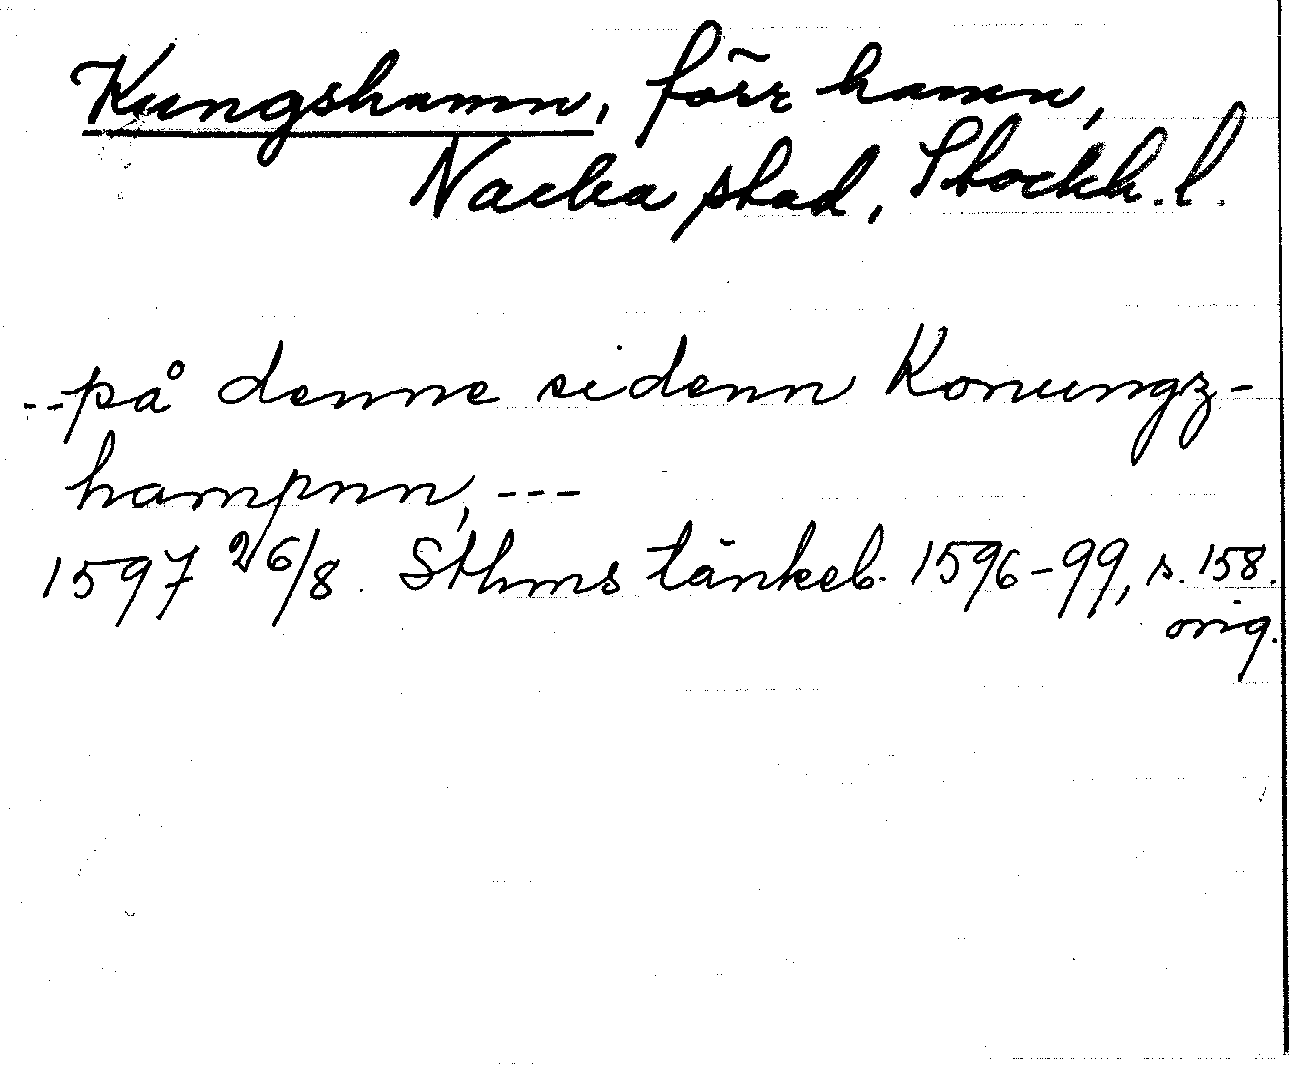 Kungshamn, förr hamn,
Nacka stad, Stockh. l.
--på denne sidenn Konungz-
hampnn, ---
1597 26/8. Sthms tänkeb. 1596-99, s. 158.
orig.